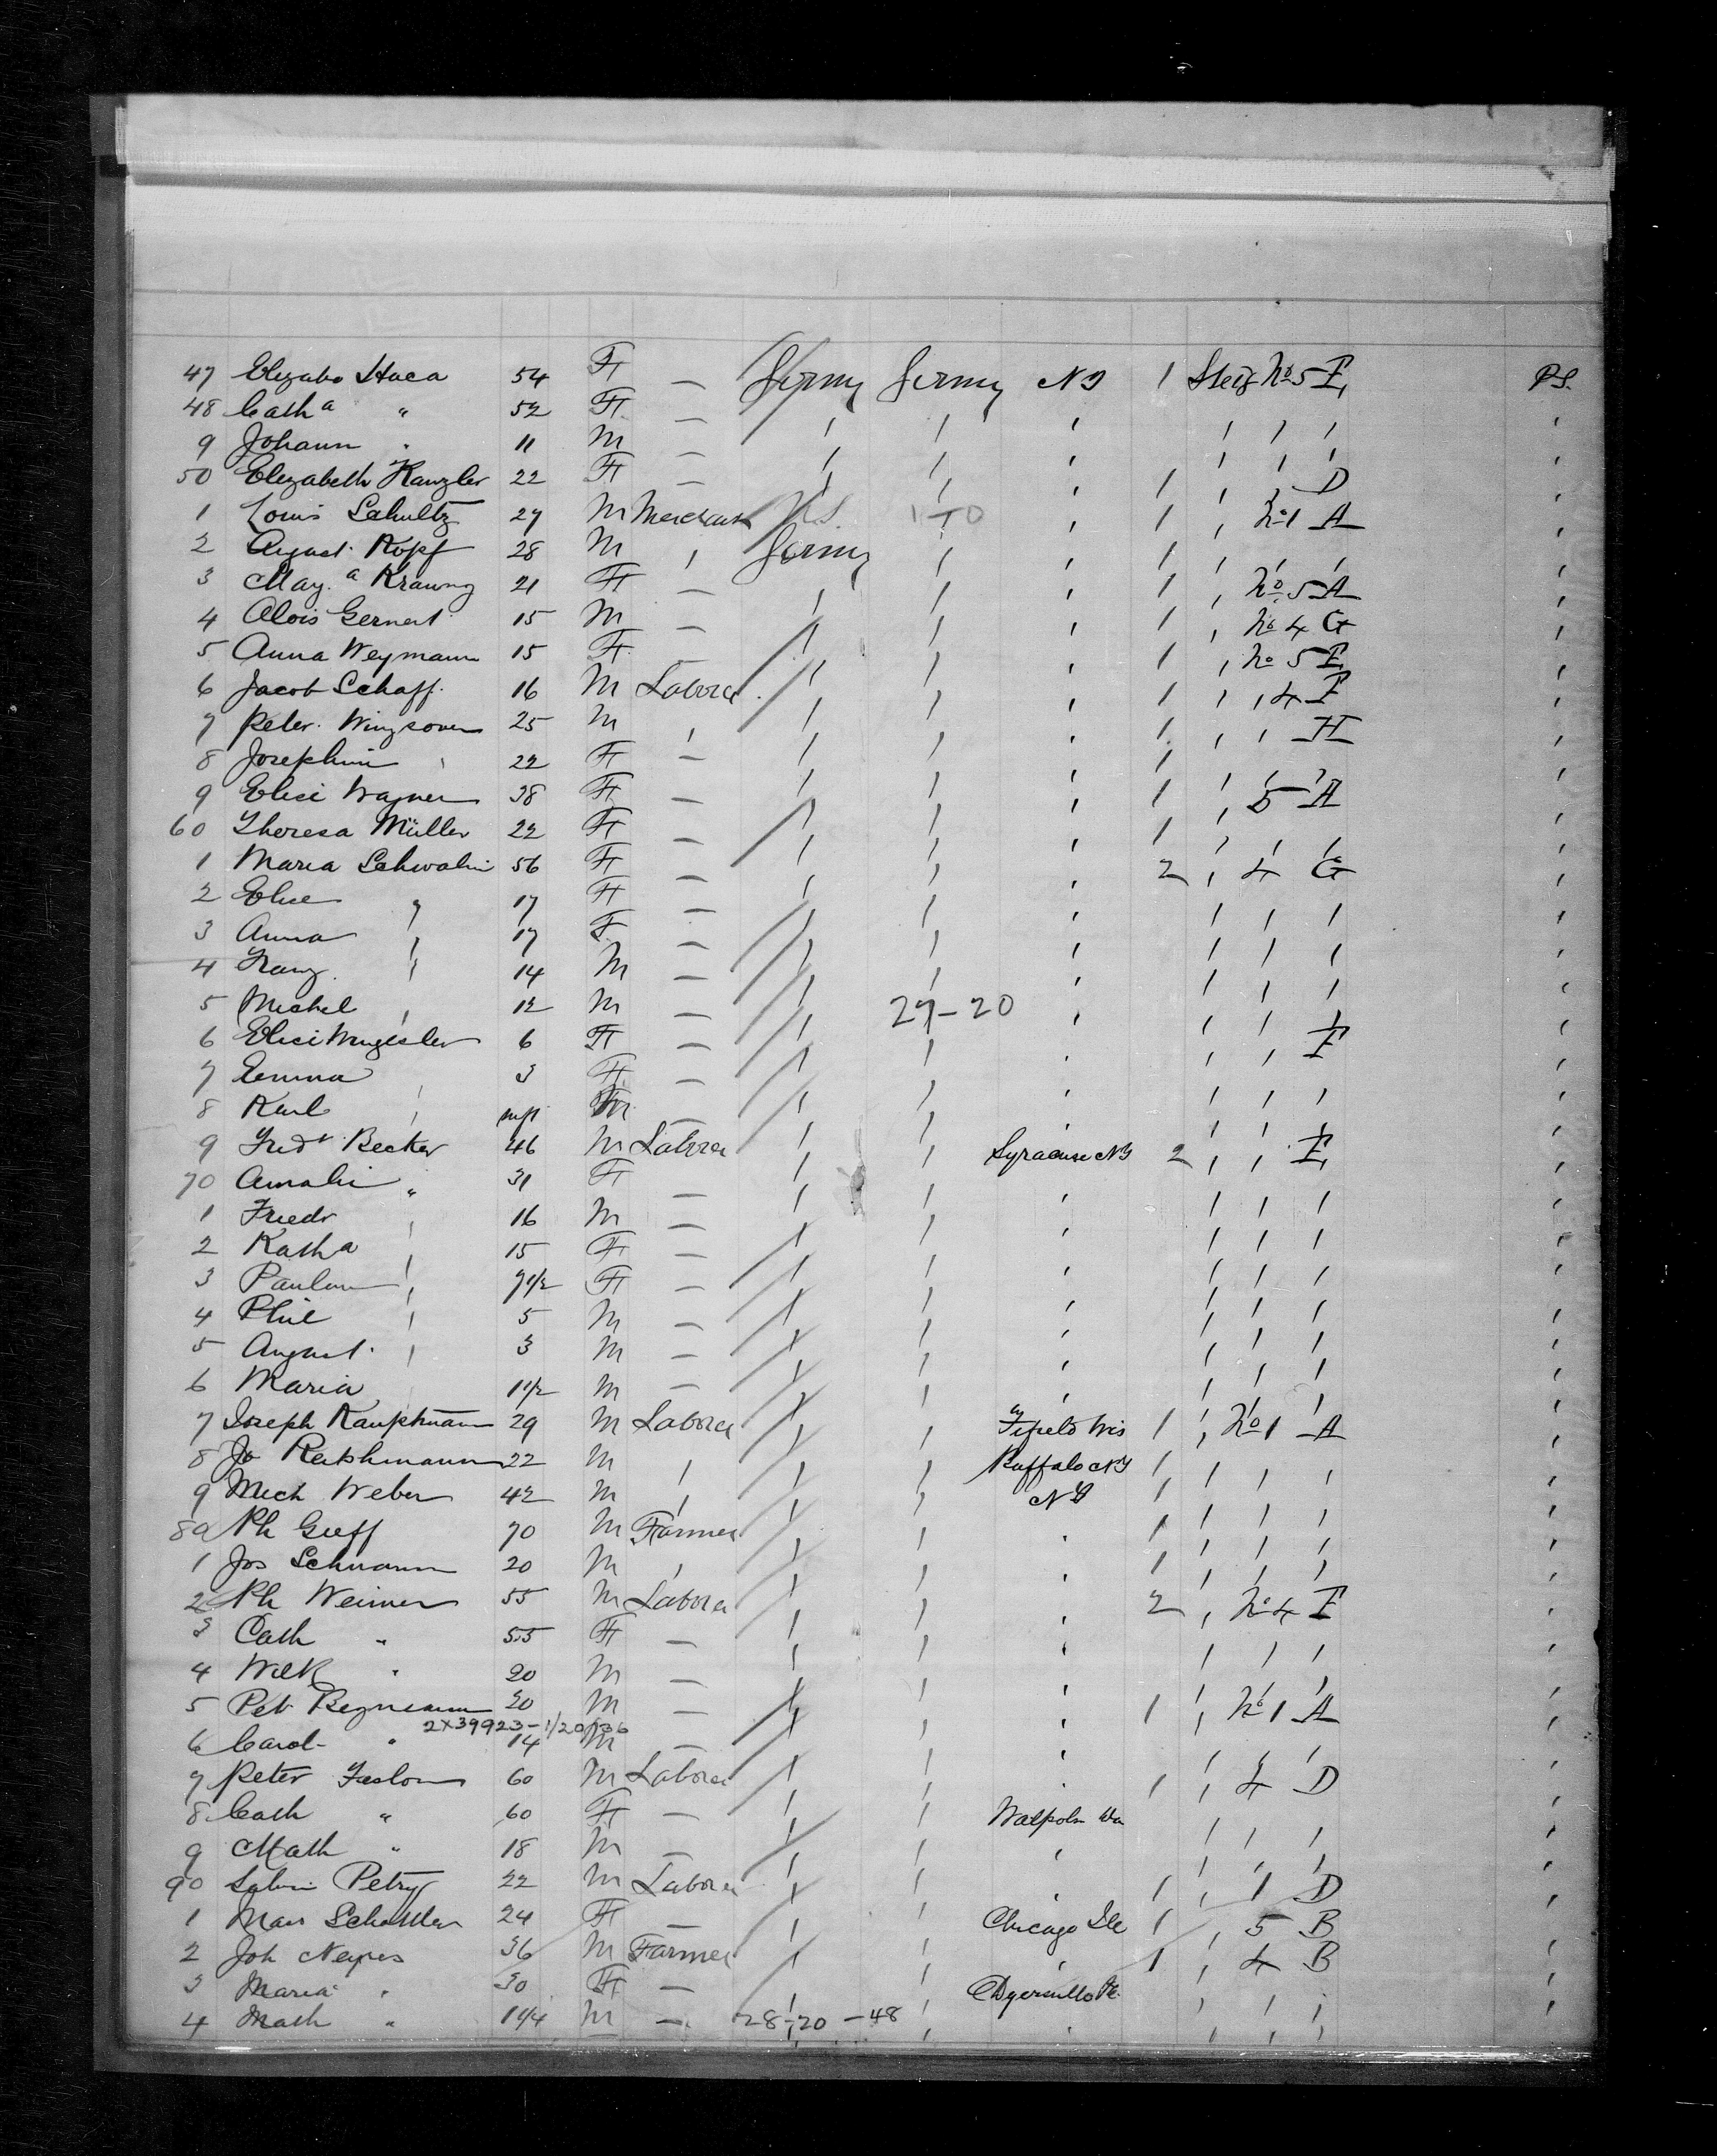 47 Elizabe Haca 54 F — Germy Germy NY 1 Steig No 5 E P.S.
48 Cath a " 52 F —
9 Johann " 11 M —
50 Elizabeth Kanzler 22 F — 1 D
1 Louis Schultz 27 M Merchant U.S. 1 No 1 A
2 August Kopf 28 M " Germy 1
3 Mag. a Krauny 21 F — 1 No 5 A
4 Alois Gernert 15 M — 1 No 4 G
5 Anna Weymann 15 F — 1 No 5 E
6 Jacob Schaff 16 M Laborer 1 4 F
7 Peter 25 M " 1 H
8 Josephin " 22 F — 1
9 Elise Wagner 38 F — 1 5 A
60 Theresa Müller 22 F — 1
1 Maria Schwalm 56 F — 2 4 G
2 Elise " 17 F —
3 Anna " 17 F —
4 Franz " 14 M —
5 Michel " 12 M — 27-20
6 Elise 6 F — F
7 Emma " 3 F —
8 Karl " inf M —
9 Fredr Becker 46 M Laborer Syracuse NY 2 E
70 Amalie " 31 F —
1 Friedr " 16 M —
2 Katha " 15 F —
3 Paulin " 7 1/2 F —
4 Phil " 5 M —
5 August " 3 M —
6 Maria " 1 1/2 M —
7 Joseph Kauphmann 29 M Laborer Fifield Wis 1 No 1 A
8 Jo 22 M " Buffalo NY 1
9 Mich Weber 42 M " NY 1
80 Ph Greff 70 M Farmer 1
1 Jos Schmann 20 M " 1
2 Ph Weimer 55 M Laborer 2 No 4 E
3 Cath " 55 F —
4 20 M —
5 Pet 30 M — 1 No 1 A
2X39923-1/20/36
6 Carol " 14 M —
7 Peter 60 M Laborer 1 4 D
8 Cath " 60 F — Walpole
9 Math " 18 M —
90 Petry 22 M Laborer 1 1 D
1 24 F — Chicago Ill 1 5 B
2 Joh 36 M Farmer 1 4 B
3 Maria " 30 F —
4 Math " 1 1/4 M — 28-20-48